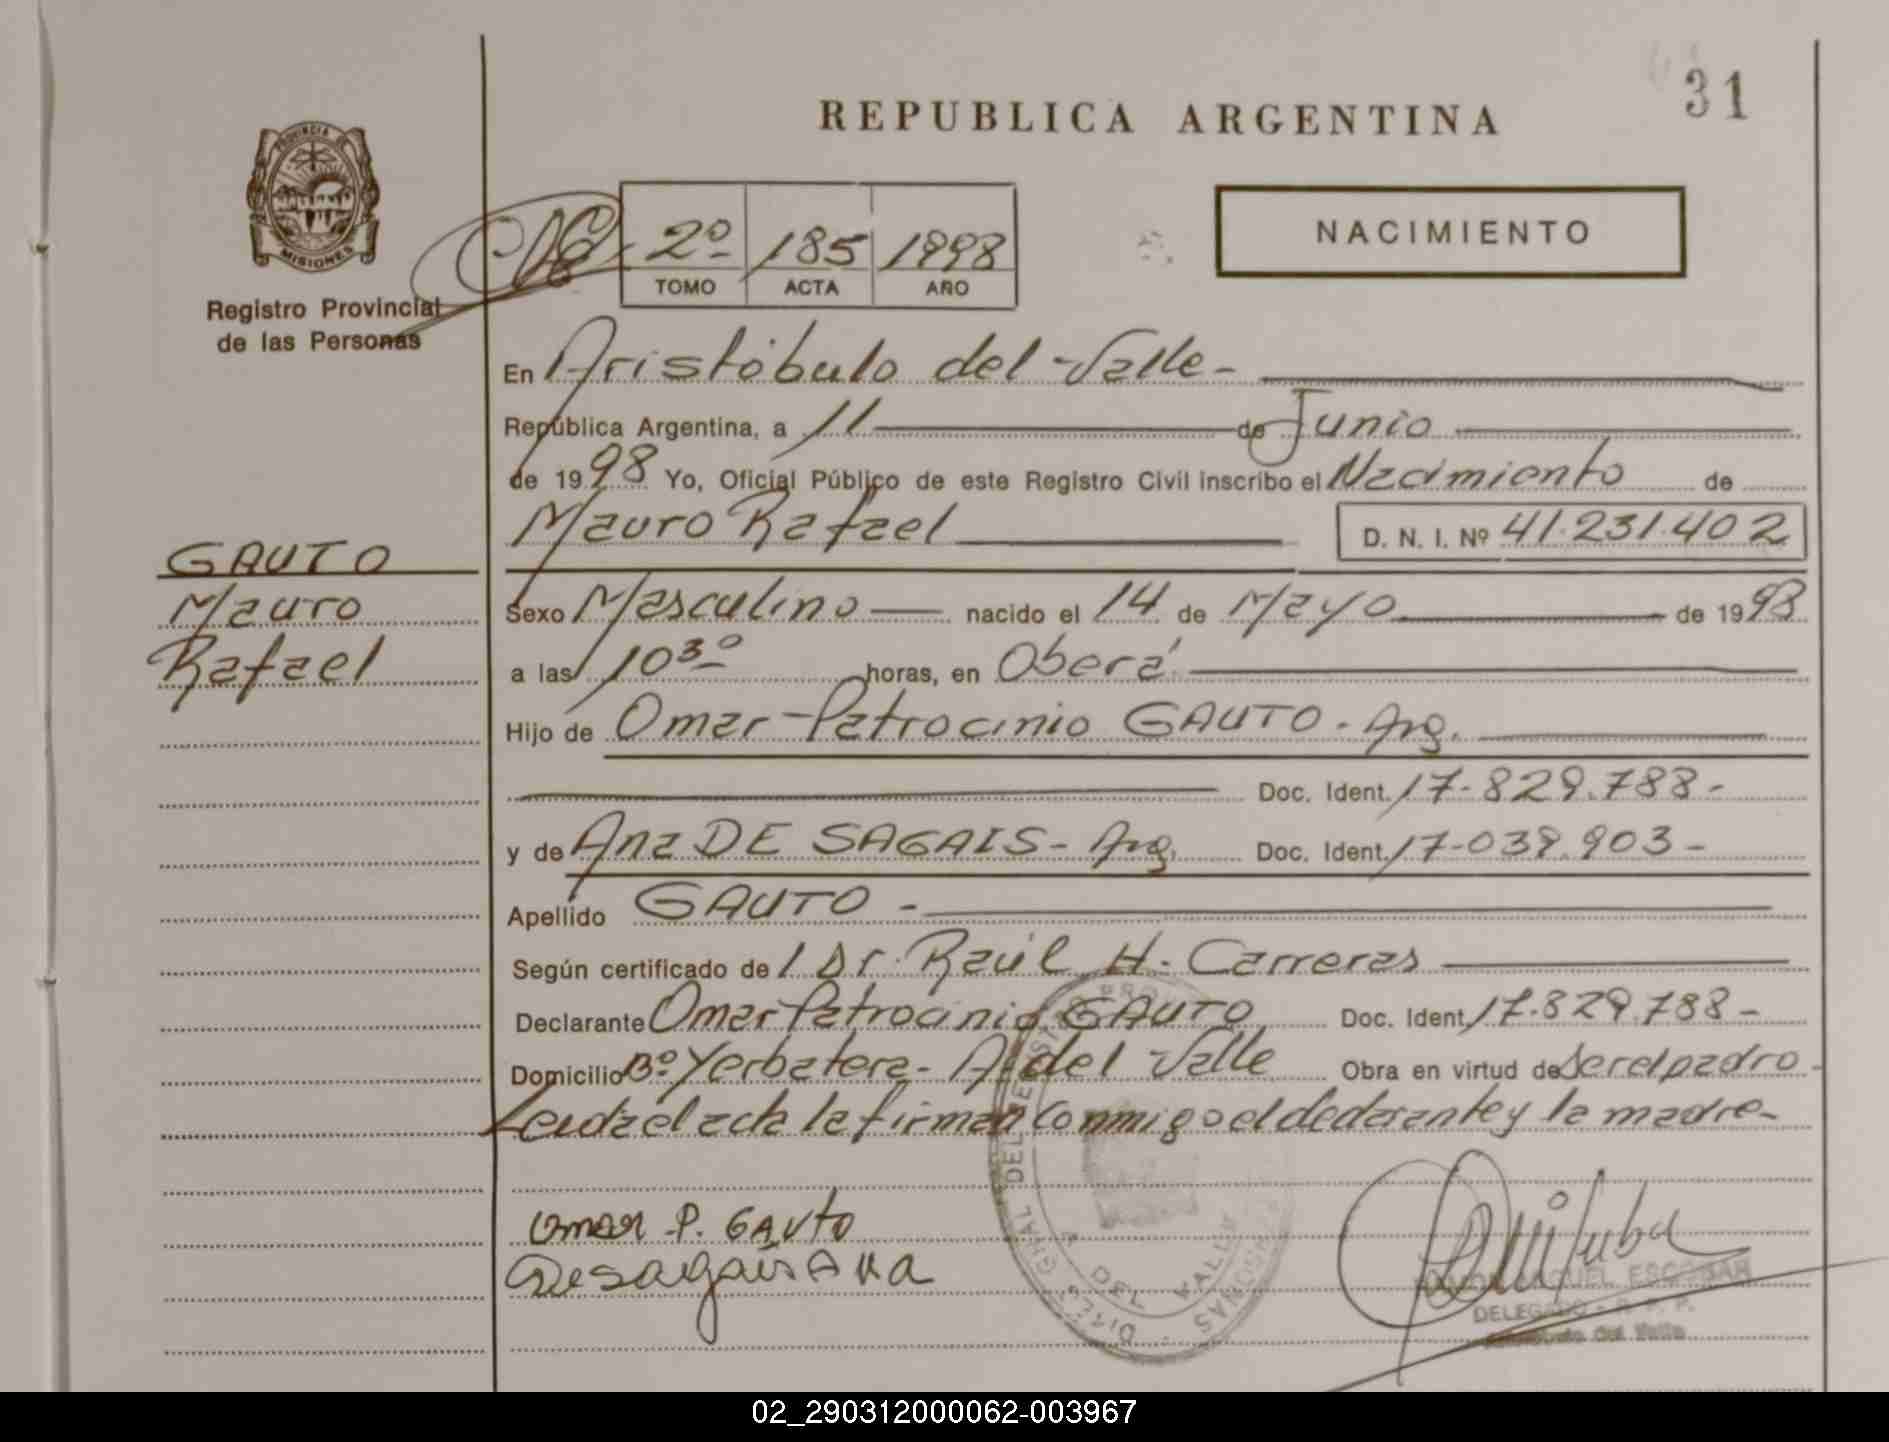 31
REPUBLICA ARGENTINA
PROVINCIA DE
MISIONES
Registro Provincial
de las Personas
2º 185 1998
TOMO ACTA AÑO
NACIMIENTO
En Aristóbulo del Valle-
República Argentina, a 11 de Junio
de 1998 Yo, Oficial Público de este Registro Civil inscribo el Nacimiento de
Mauro Rafael D. N. I. Nº 41.231.402
GAUTO
Mauro
Rafael
Sexo Masculino nacido el 14 de Mayo de 1998
a las 10 30 horas, en Oberá
Hijo de Omar Patrocinio GAUTO - Arg.
Doc. Ident. 17.829.788-
y de Ana DE SAGAIS - Arg. Doc. Ident. 17.039.903-
Apellido GAUTO -
Según certificado de Dr. Raúl H. Carreras
Declarante Omar Patrocinio GAUTO Doc. Ident. 17.829.788-
Domicilio Bº Yerbatera - A. del Valle Obra en virtud de ser el padre -
Leída el acta la firman conmigo el declarante y la madre-
Omar P. GAUTO
Desagais Ana
ESCOBAR
DELEGADO - R. P. P.
del Valle
02_290312000062-003967